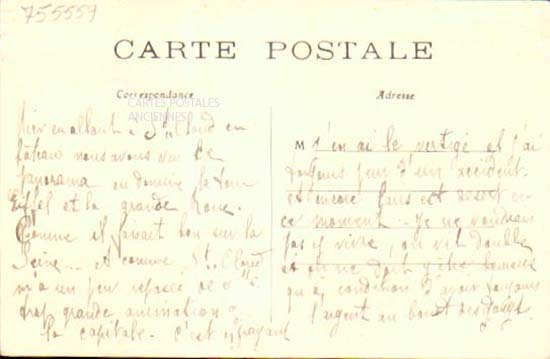 755559
CARTE POSTALE
Correspondance
Adresse
CARTES POSTALES
ANCIENNES
Hier en allant à St Cloud en
bateau nous avons vu ce
panorama où domine la tour
Eiffel et la grande roue.
Comme il faisait bon sur la
Seine... et comme St. Cloud
m'a un peu reposée de la
trop grande animation de
la capitale. C'est effrayant
M
j'en ai le vertige et j'ai
toujours peur d'un accident.
et encore Paris est désert en
ce moment. Je ne voudrais
pas y vivre, on vit double
et on ne doit y être heureux
qu'à condition d'avoir toujours
l'argent au bout des doigts.